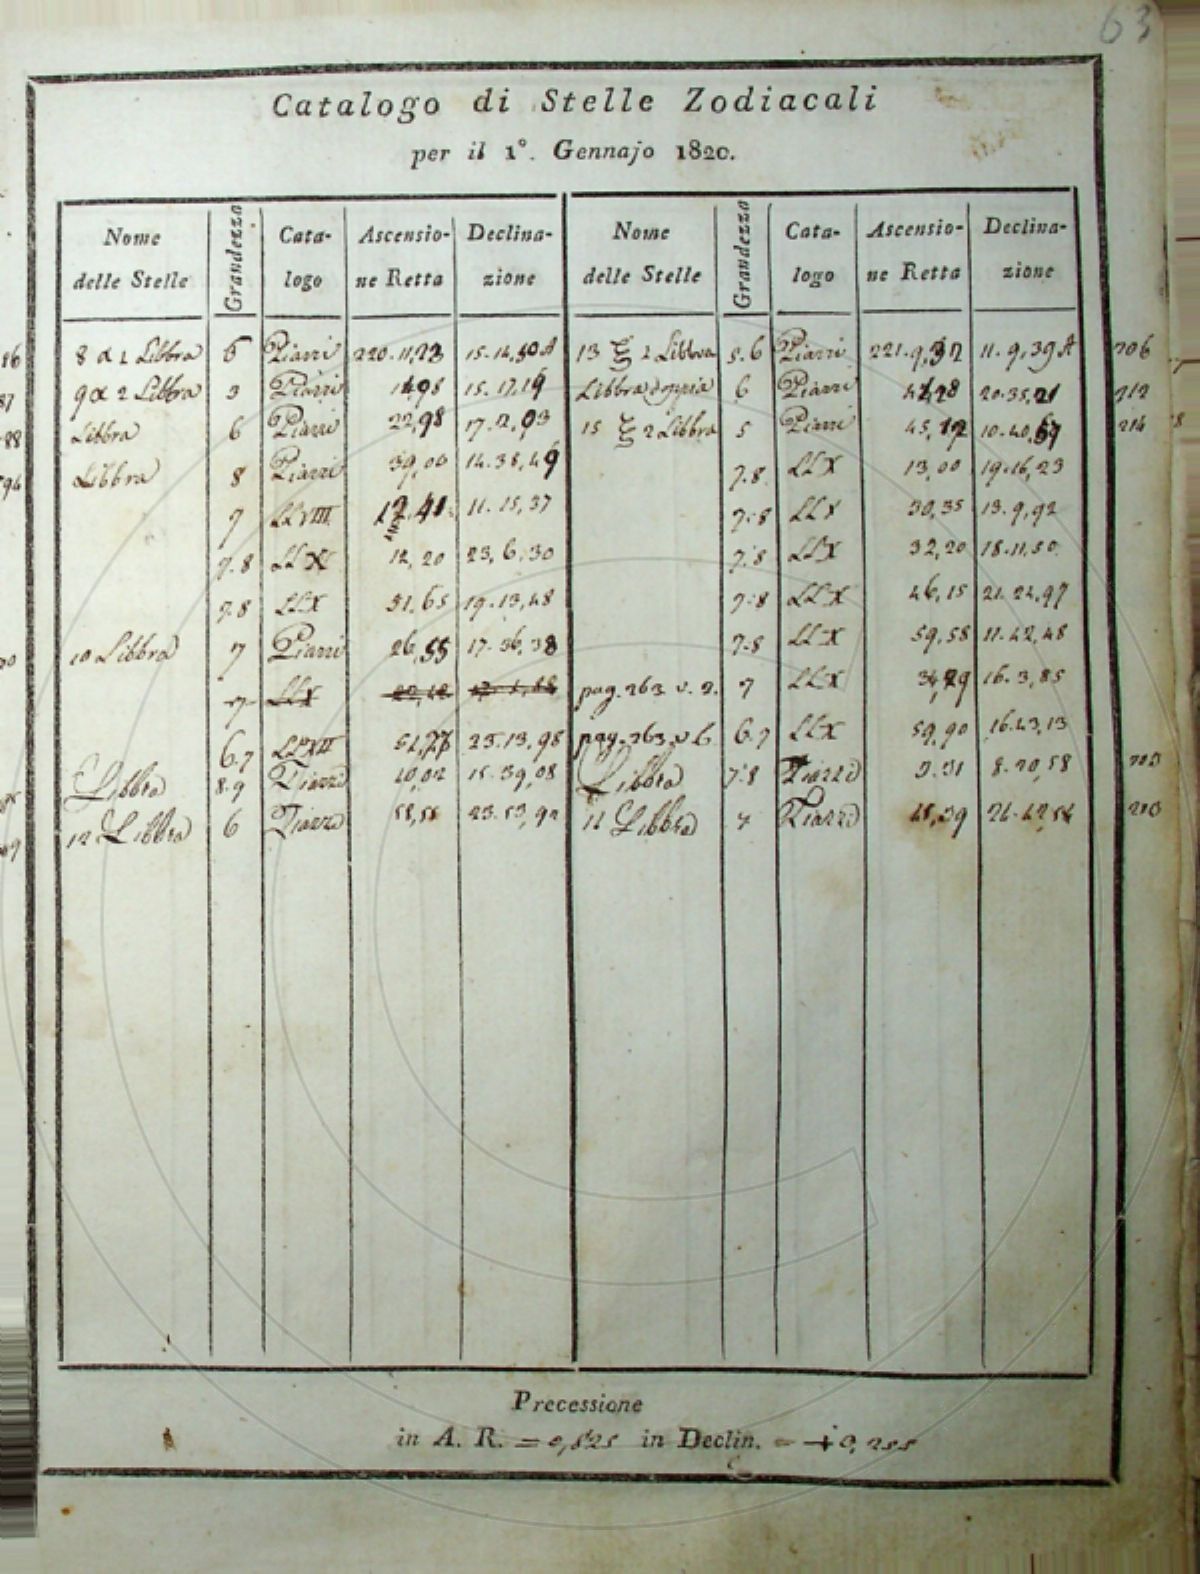 63
Catalogo di Stelle Zodiacali
per il 1°. Gennajo 1820.
Nome delle Stelle Grandezza Cata-logo Ascensio-ne Retta Declina-zione Nome delle Stelle Grandezza Cata-logo Ascensio-ne Retta Declina-zione
8 α 1 Libbra 6 Piazzi 220.11,23 15.14,50 A 13 ξ 1 Libbra 5.6 Piazzi 221.9,32 11.9,39 A 206
9 α 2 Libbra 3 Piazzi 14,98 15.17,19 Libbra 6 Piazzi 20.35,21 212
Libbra 6 Piazzi 22,98 17.2,93 15 ξ 2 Libbra 5 Piazzi 45,12 10.40,67 214
Libbra 8 Piazzi 39,00 14.38,49 7.8 LLX 13,00 19.16,23
7 LLVIII 12,41 11.15,37 7.8 LLX 30,35 13.9,92
7.8 LLX 12,20 23.6,30 7.8 LLX 32,20 18.11,50
7.8 LLX 51,65 19.13,48 7.8 LLX 46,15 21.24,97
10 Libbra 7 Piazzi 26,55 17.36,38 7.8 LLX 59,58 11.42,48
7 LLX pag. 263 v. 2. 7 LLX 16.3,85
6.7 23.13,98 pag. 263 v 6 6.7 LLX 59,90 16.43,13
Libbra 8.9 Piazzi 10,02 15.39,08 Libbra 7.8 Piazzi 3.31 8.20,58 203
12 Libbra 6 Piazzi 23.53,92 11 Libbra Piazzi 213
Precessione
in A. R. = 0,825 in Declin. = + 0,255